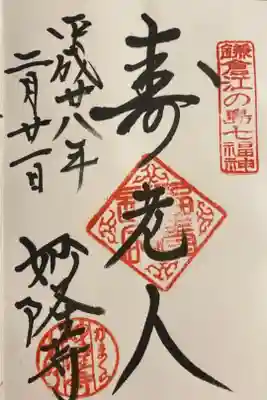 鎌倉江の島七福神
寿老人
平成廿八年
二月廿一日
妙隆寺